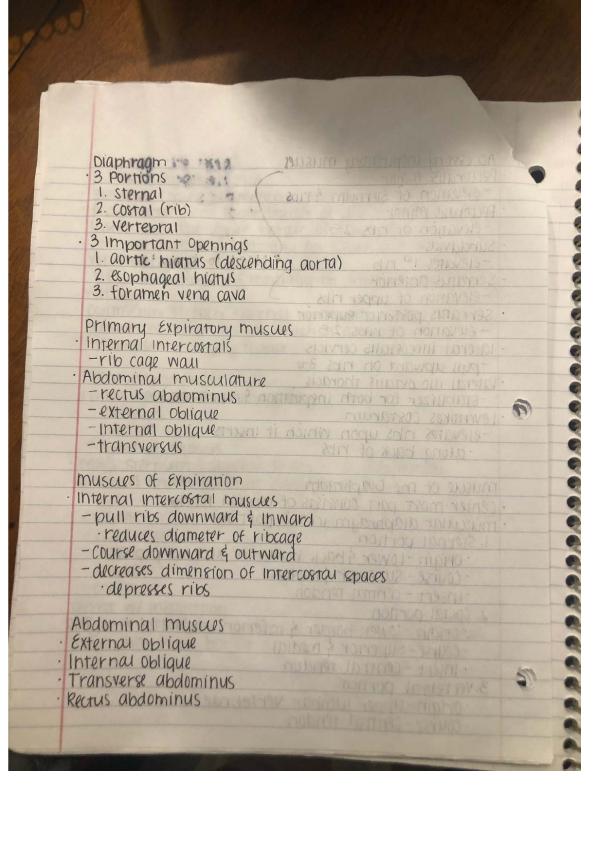 Diaphragm
· 3 Portions
1. sternal
2. costal (rib)
3. vertebral
· 3 Important Openings
1. aortic hiatus (descending aorta)
2. esophageal hiatus
3. foramen vena cava
Primary Expiratory muscles
· Internal Intercostals
- rib cage wall
· Abdominal musculature
- rectus abdominus
- external oblique
- Internal oblique
- transversus
muscles of Expiration
· Internal Intercostal muscles
- pull ribs downward & inward
· reduces diameter of ribcage
- Course downward & outward
- decreases dimension of intercostal spaces
· depresses ribs
Abdominal muscles
· External oblique
· Internal oblique
· Transverse abdominus
· Rectus abdominus